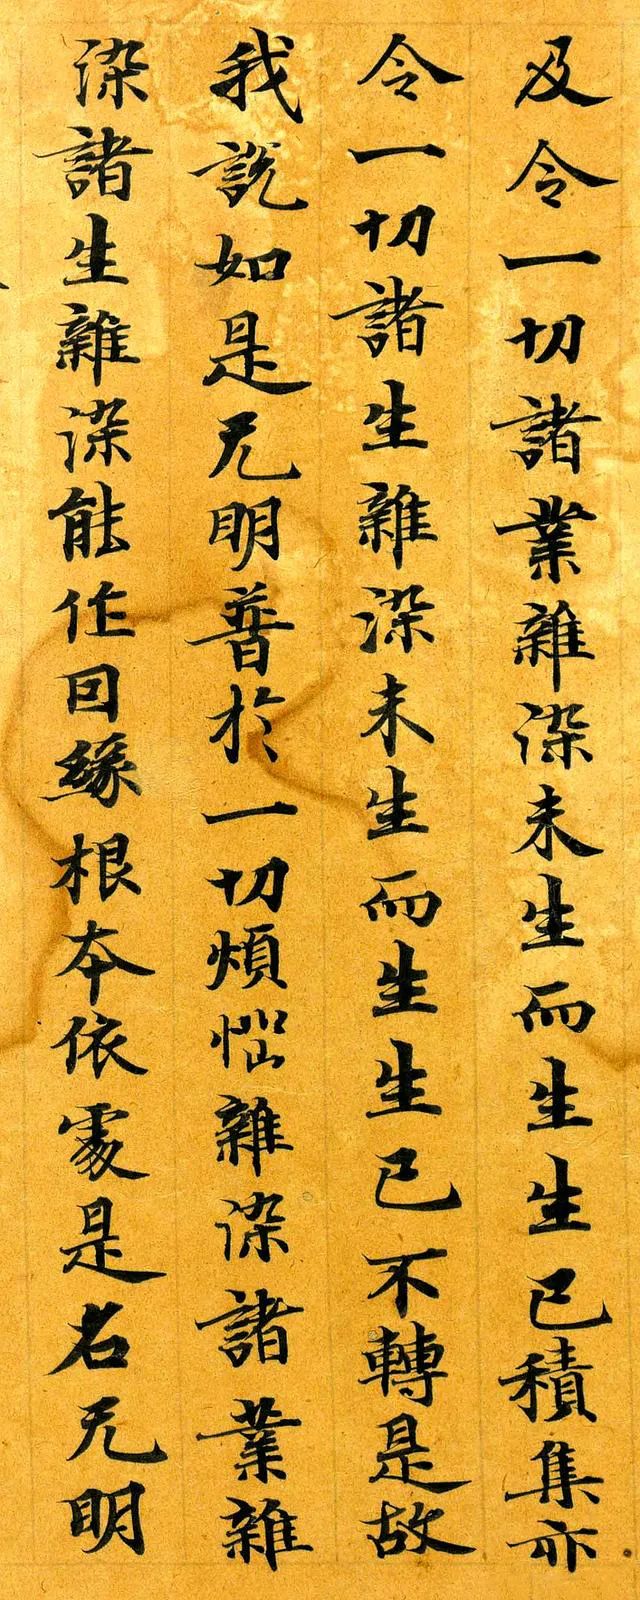 及令一切諸業雜染未生而生生已積集亦
令一切諸生雜染未生而生生已不轉是故
我説如是无明普於一切煩惱雜染諸業雜
染諸生雜染能作因緣根本依處是名无明